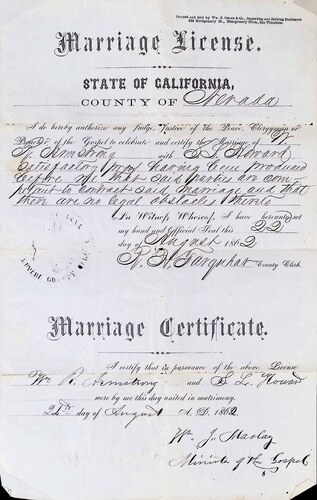 Printed and sold by Wm. B. Cooke & Co., Importing and Jobbing Stationers
624 Montgomery St., Montgomery Block, San Francisco.
Marriage License.
STATE OF CALIFORNIA,
COUNTY OF Nevada
I do hereby authorize any Judge, Justice of the Peace, Clergyman or
Preacher of the Gospel to celebrate and certify the Marriage of Wm
R. Armstrong with S. L. Howard
Satisfactory proof having been produced
before me that said parties are com
petent to contract said marriage and that
there are no legal obstacles thereto
In Witness Whereof, I have hereunto set
my hand and Official Seal this 22
day of August 1862
R. H. Farquhar County Clerk.
Marriage Certificate.
I certify that in pursuance of the above License
Wm R. Armstrong and S. L. Howard
were by me this day united in matrimony.
24th day of August A. D. 1862
Wm. J. Maclay
Minister of the Gospel